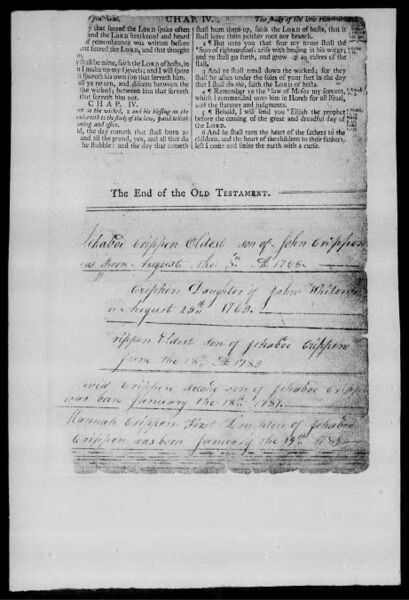 CHAP. IV.
y that feared the LORD spake often
and the LORD hearkened and heard
of remembrance was written before
at feared the LORD, and that thought
y shall be mine, saith the LORD of hosts,
n I make up my jewels; and I will spare
n spareth his own son that serveth him.
all ye return, and discern between
the wicked; between him that serveth
that serveth him not.
CHAP. IV.
ent on the wicked, 2 and his blessing on the
exhorteth to the study of the law, 5 and telleth
coming, and office.
ld, the day cometh that shall burn as
and all the proud, yea, and all that do
be stubble: and the day that cometh
The study of the law recommended
shall burn them up, saith the LORD of hosts, that it
shall leave them neither root nor branch.
2 ¶ But unto you that fear my name shall the
Sun of righteousness arise with healing in his wings;
and ye shall go forth, and grow up as calves of the
stall.
3 And ye shall tread down the wicked; for they
shall be ashes under the soles of your feet in the day
that I shall do this, saith the LORD of hosts.
4 ¶ Remember ye the law of Moses my servant,
which I commanded unto him in Horeb for all Israel,
with the statutes and judgments.
5 ¶ Behold, I will send you Elijah the prophet
before the coming of the great and dreadful day of
the LORD.
6 And he shall turn the heart of the fathers to the
children, and the heart of the children to their fathers,
lest I come and smite the earth with a curse.
The End of the OLD TESTAMENT.
Ichaboc Crippen Eldest son of John Crippen
was Born August the AD 1763
Crippen Daughter of John
August 25th 1763
rippen Eldest son of Ichaboc Crippen
June the 18th AD 1783
avid Crippen second son of Ichaboc Cripp
was born January the 18th 178
Hannah Crippen First Daughter of Ichaboc
Crippen was born January the 178